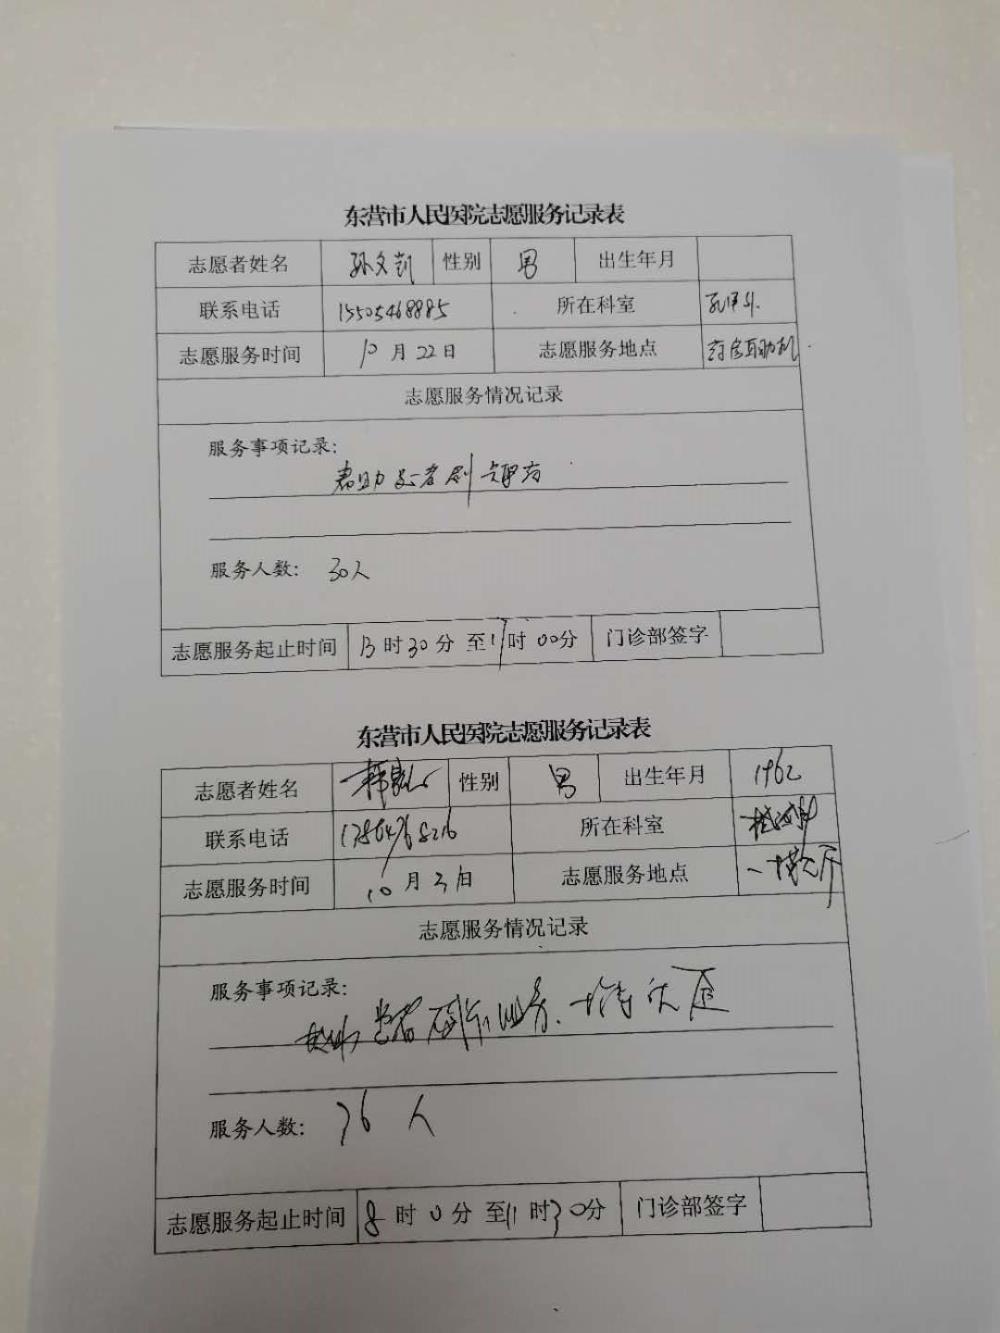 东营市人民医院志愿服务记录表
志愿者姓名 孙文凯 性别 男 出生年月
联系电话 15505468885 所在科室
志愿服务时间 10月22日 志愿服务地点 药房自助机
志愿服务情况记录
服务事项记录:
帮助患者刷卡取药
服务人数: 30人
志愿服务起止时间 13时30分至17时00分 门诊部签字
东营市人民医院志愿服务记录表
志愿者姓名 性别 男 出生年月 1962
联系电话 所在科室
志愿服务时间 10月31日 志愿服务地点 一楼大厅
志愿服务情况记录
服务事项记录:
患者
服务人数: 76人
志愿服务起止时间 8时0分至11时30分 门诊部签字